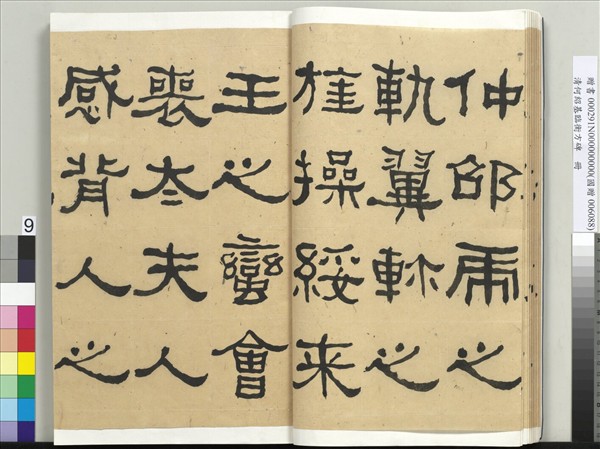 仲邵虎之
軌翼軫之
旌操綏来
王之蠻會
喪太夫人
感背人之
贈書 000291N000000000(國贈 006088)
清何紹基臨衡方碑 冊
9